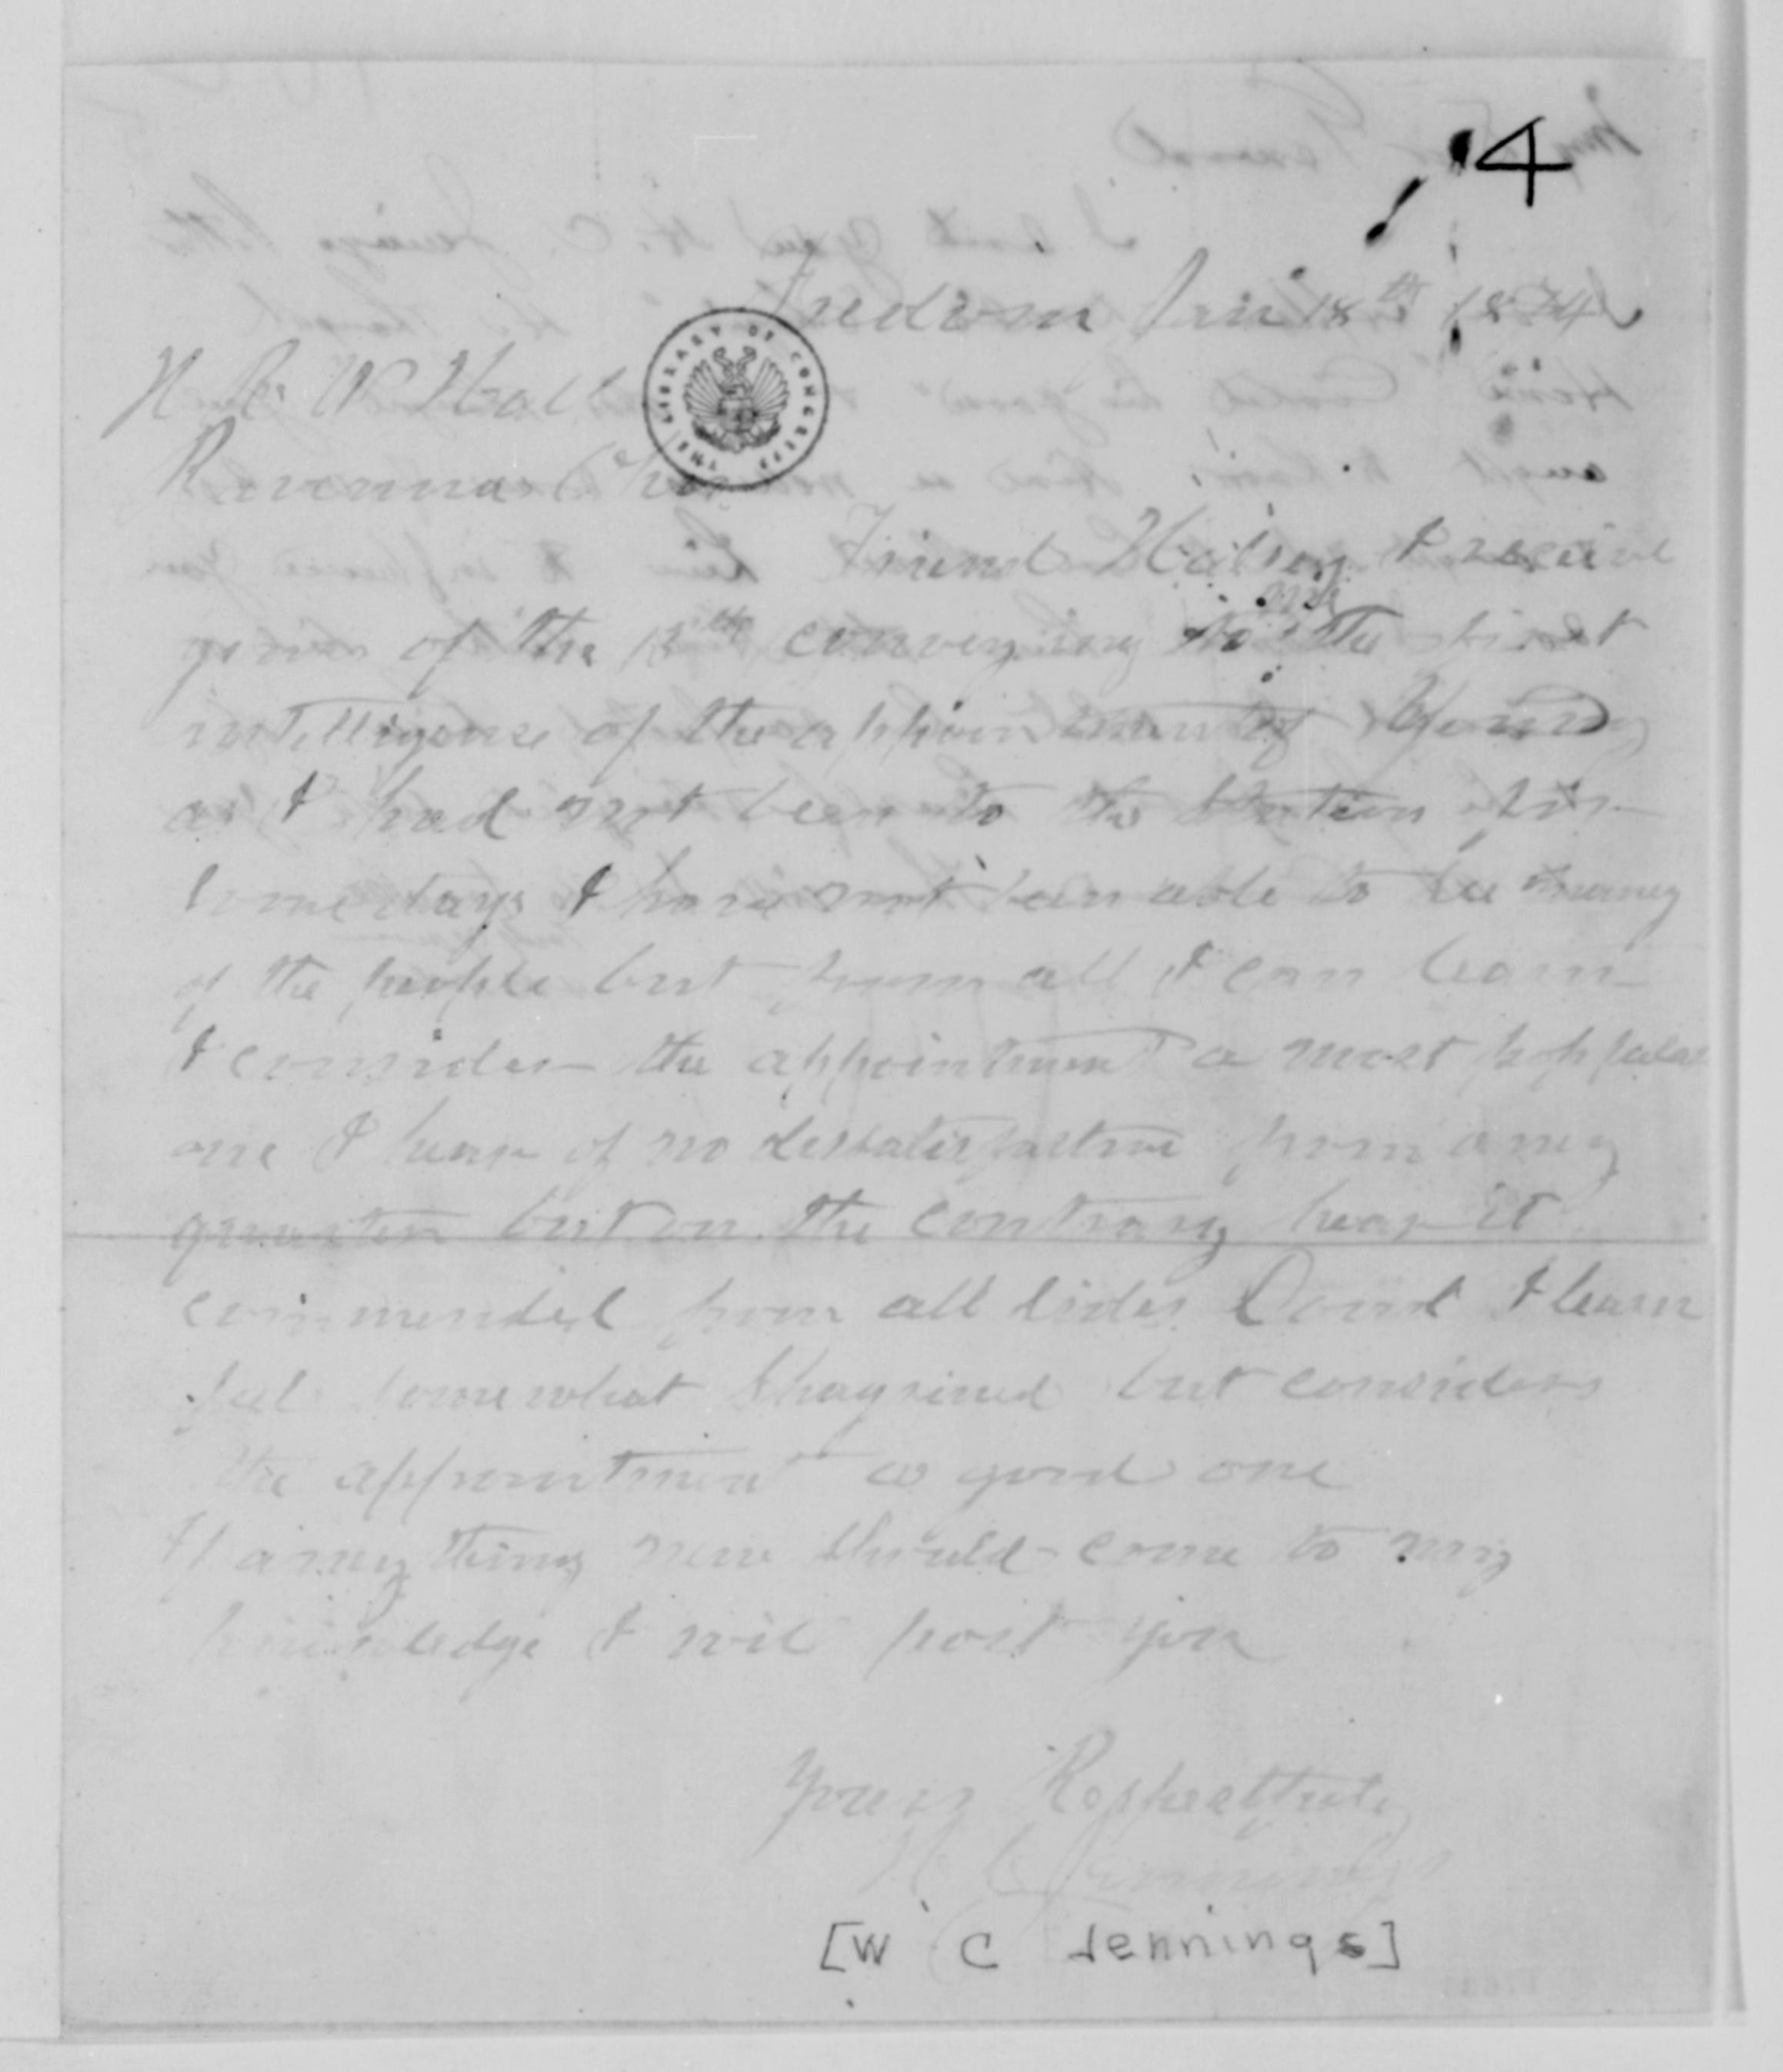 4
Freedom Jan 18th 1874
H R W Hall
THE LIBRARY OF CONGRESS
Ravenna Ohio
Friend Halsey I receive
yours of the 15th conveying to me the first
intelligence of the appointment of Young
as I had not been to the Station for
some days I have not been able to see many
of the people but from all I can learn
I consider the appointment a most popular
one I hear of no dissatisfaction from any
quarter but on the contrary hear it
commended from all sides I learn
feels somewhat Chagrined but considers
the appointment a good one
If any thing new should come to my
knowledge I will post you
Yours Respectfuly
W C Jennings
[W C Jennings]